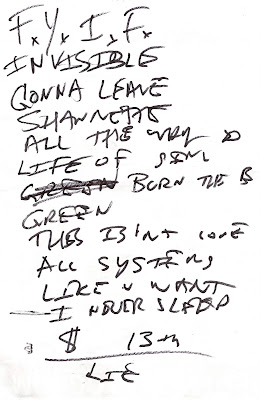 F.Y.I.F.
INVISIBLE
GONNA LEAVE
SHANNETTE
ALL THE WAY
LIFE OF
BORN THE B
GREEN
THIS ISN'T LOVE
ALL SYSTEMS
LIKE U WANT
I NEVER SLEEP
$ 13th
LIE